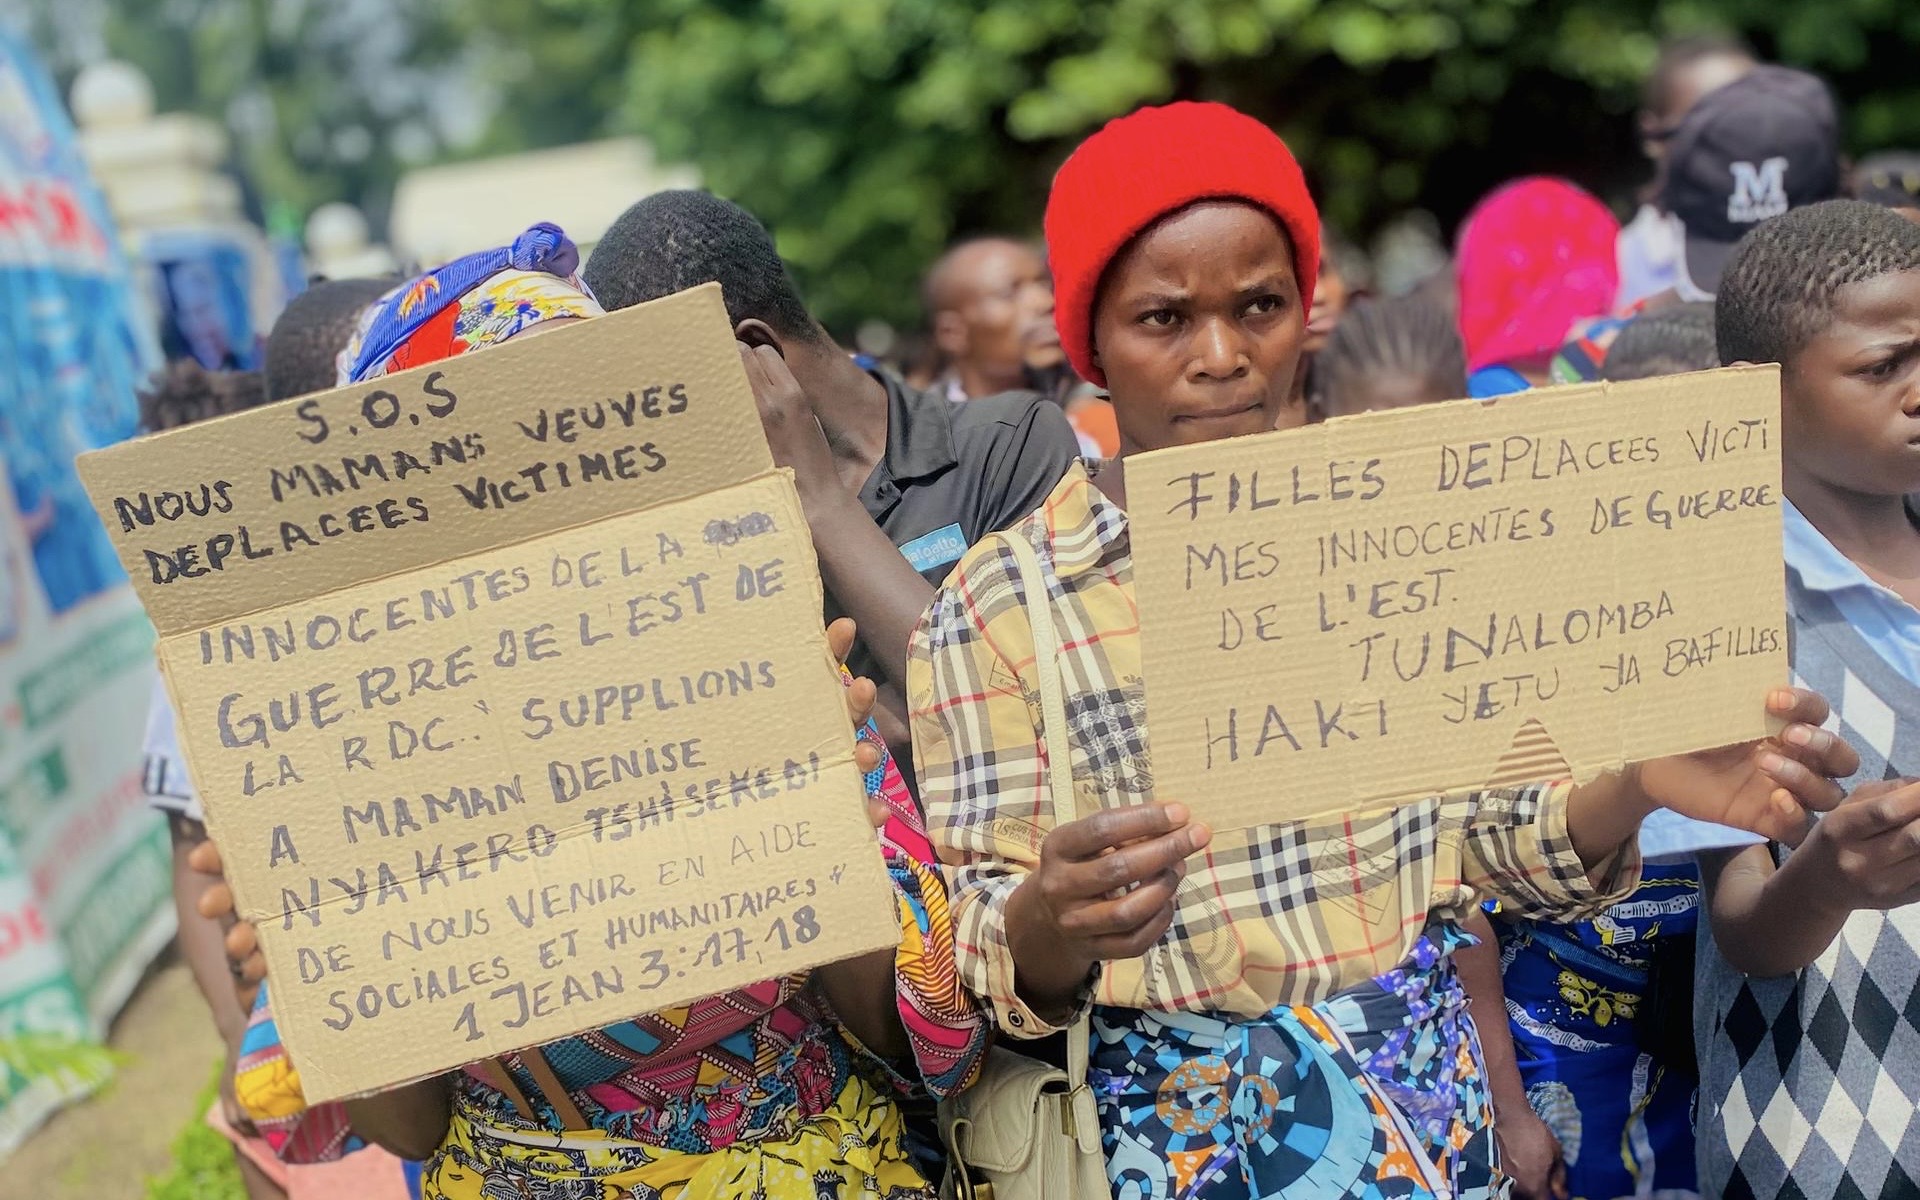 S.O.S
NOUS MAMANS VEUVES
DEPLACEES VICTIMES
INNOCENTES DE LA
GUERRE DE L'EST DE
LA RDC. SUPPLIONS
A MAMAN DENISE
NYAKERO TSHISEKEDI
DE NOUS VENIR EN AIDE
SOCIALES ET HUMANITAIRES
1 JEAN 3:17,18
FILLES DEPLACEES VICTI
MES INNOCENTES DE GUERRE
DE L'EST.
TUNALOMBA
HAKI YETU YA BAFILLES.
M